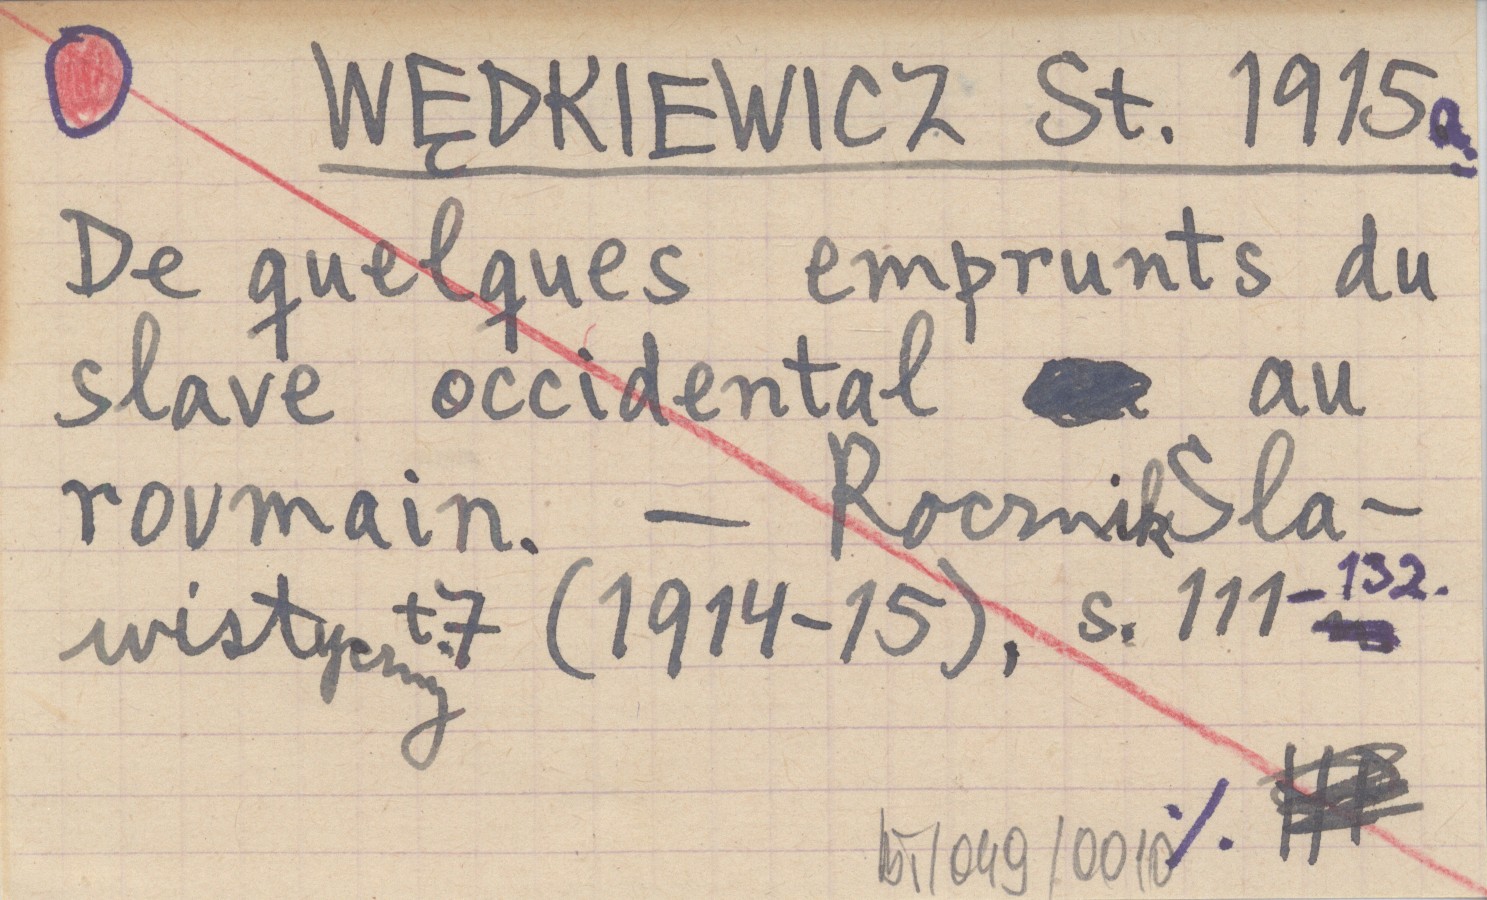 WĘDKIEWICZ St. 1915a.
De quelques emprunts du
slave occidental au
roumain. — Rocznik Sla-
wistyczny t.7 (1914-15), s. 111-132.
/049/0010 ⁒